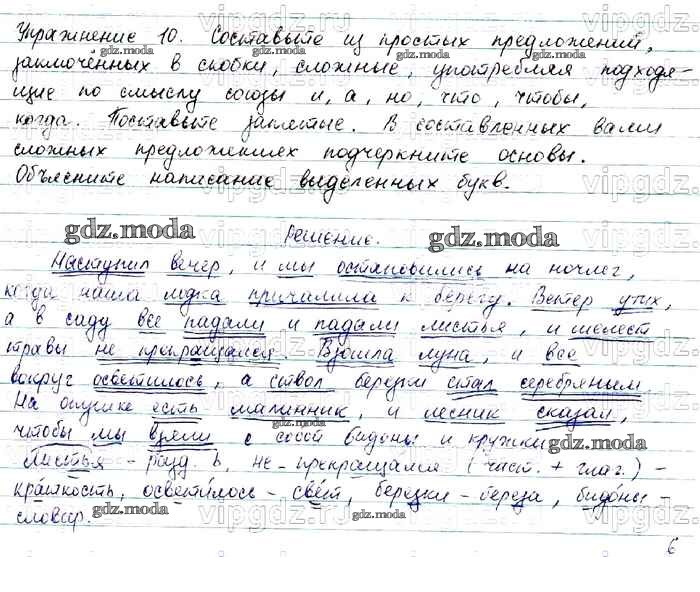 Упражнение 10. Составьте из простых предложений,
заключённых в скобки, сложные, употребляя подходя-
щие по смыслу союзы и, а, но, что, чтобы,
когда. Поставьте запятые. В составленных вами
сложных предложениях подчеркните основы.
Объясните написание выделенных букв.
Решение.
Наступил вечер, и мы остановились на ночлег,
когда наша лодка причалила к берегу. Ветер утих,
а в саду все падали и падали листья, и шелест
травы не прекращался. Взошла луна, и все
вокруг осветилось, а ствол березки стал серебряным.
На опушке есть малинник, и лесник сказал,
чтобы мы взяли с собой бидоны и кружки.
Листья - разд. ь, не - прекращался (част. + глаг.) -
краткость, осветилось - свет, березки - береза, бидоны -
словар.
6
gdz.moda
vipgdz.ru